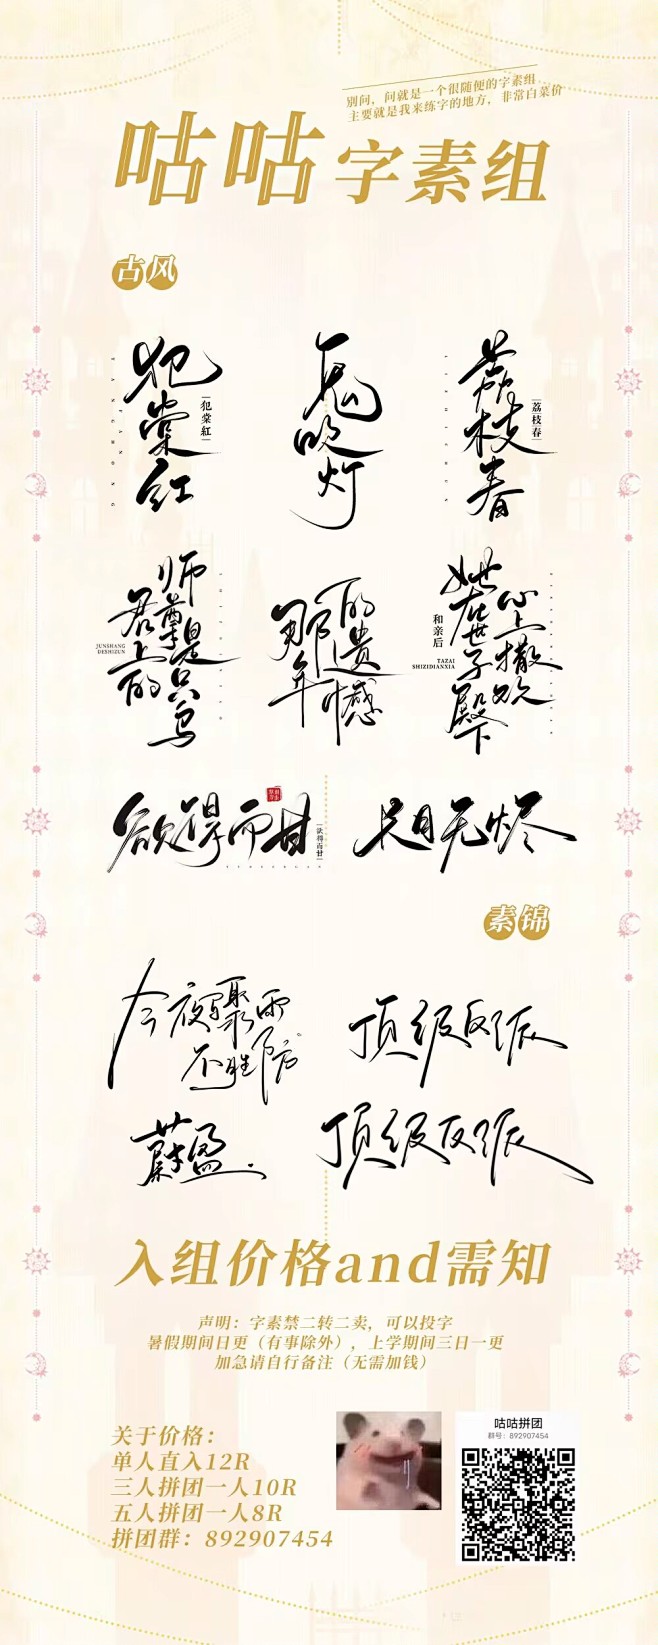 别问，问就是一个很随便的字素组
主要就是我来练字的地方，非常白菜价
咕咕字素组
古风
犯棠红
犯棠紅
鬼吹灯
荔枝春
荔枝春
师尊是只鸟
君上的
JUNSHANG
DESHIZUN
那年
的遗憾
和亲后
她在世子殿下
心上撒欢
TAZAI
SHIZIDIANXIA
欲得而甘
欲得而甘
长日无烬
素锦
今夜骤雨
不胜防
顶级反派
蔚盈
顶级反派
入组价格and需知
声明：字素禁二转二卖，可以投字
暑假期间日更（有事除外），上学期间三日一更
加急请自行备注（无需加钱）
关于价格：
单人直入12R
三人拼团一人10R
五人拼团一人8R
拼团群：892907454
咕咕拼团
群号：892907454